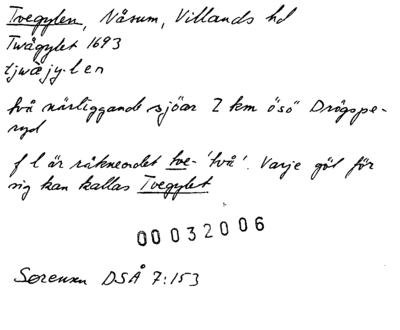 Tvegylen, Nåsum, Villands hd
Twågylet 1693
två närliggande sjöar 2 km ösö Drögspe-
ryd
f l är räkneordet tve- 'två'. Varje göl för
sig kan kallas Tvegylet
00032006
Sørensen DSÅ 7:153